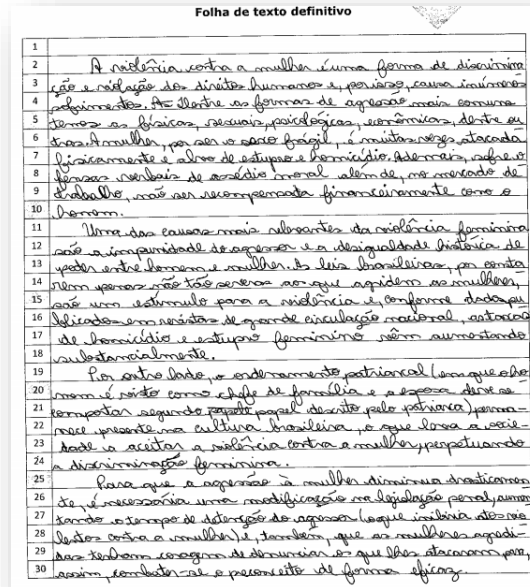 Folha de texto definitivo
1
2 A violência contra a mulher é uma forma de discrimina
3 ção e violação dos direitos humanos e, por isso, causa inúmeros
4 sofrimentos. Dentre as formas de agressão mais comuns
5 temos as físicas, sexuais, psicológicas, econômicas, dentre ou
6 tras. A mulher, por ser o sexo frágil, é muitas vezes atacada
7 fisicamente e alvo de estupro e homicídio. Ademais, sofre o
8 fensas verbais de assédio moral além de, no mercado de
9 trabalho, não ser recompensada financeiramente como o
10 homem.
11 Uma das causas mais relevantes da violência feminina
12 são a impunidade do agressor e a desigualdade histórica de
13 poder entre homem e mulher. As leis brasileiras, por conta
14 rem penas não tão severas aos que agridem as mulheres,
15 são um estímulo para a violência e, conforme dados pu
16 blicados em revistas de grande circulação nacional, as tacas
17 de homicídio e estupro feminino vêm aumentando
18 substancialmente.
19 Por outro lado, o ordenamento patriarcal (em que o ho
20 mem é visto como chefe de família e a esposa deve se
21 comportar segundo papel descrito pelo patriarca) perma
22 nece presente na cultura brasileira, o que leva a socie-
23 dade a aceitar a violência contra a mulher, perpetuando
24 a discriminação feminina.
25 Para que a agressão à mulher diminua drasticamen
26 te, é necessária uma modificação na legislação penal, aumen
27 tando o tempo de detenção do agressor (o que inibiria atos vio
28 lentos contra a mulher) e, também, que as mulheres agredi
29 das tenham coragem de denunciar os que lhes atacaram para,
30 assim, combater-se o preconceito de forma eficaz.